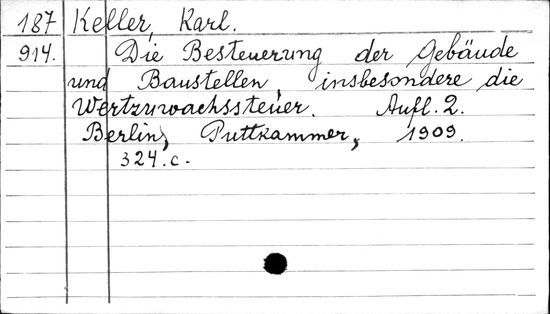 187 Keller, Karl.
914. Die Besteuerung der Gebäude
und Baustellen, insbesondere die
Wertzuwachssteuer. Aufl. 2.
Berlin, Puttkammer, 1909.
324.c.